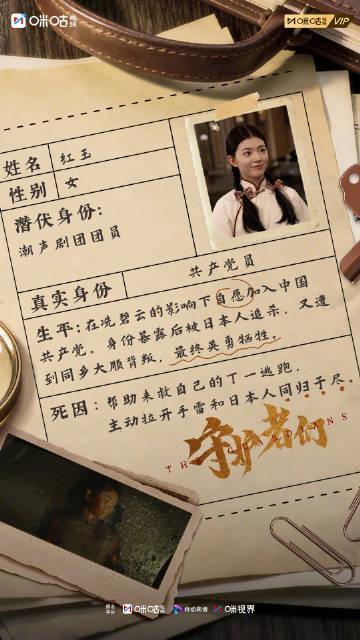 咪咕视频
咪咕视频 VIP
姓名 红玉
性别 女
潜伏身份:
潮声剧团团员
真实身份 共产党员
生平:在冼碧云的影响下自愿加入中国
共产党。身份暴露后被日本人追杀,又遭
到同乡大顺背叛,最终英勇牺牲。
死因:帮助来救自己的丁一逃跑,
主动拉开手雷和日本人同归于尽。
守护者们
咪咕视频 移动高清 咪咕视界